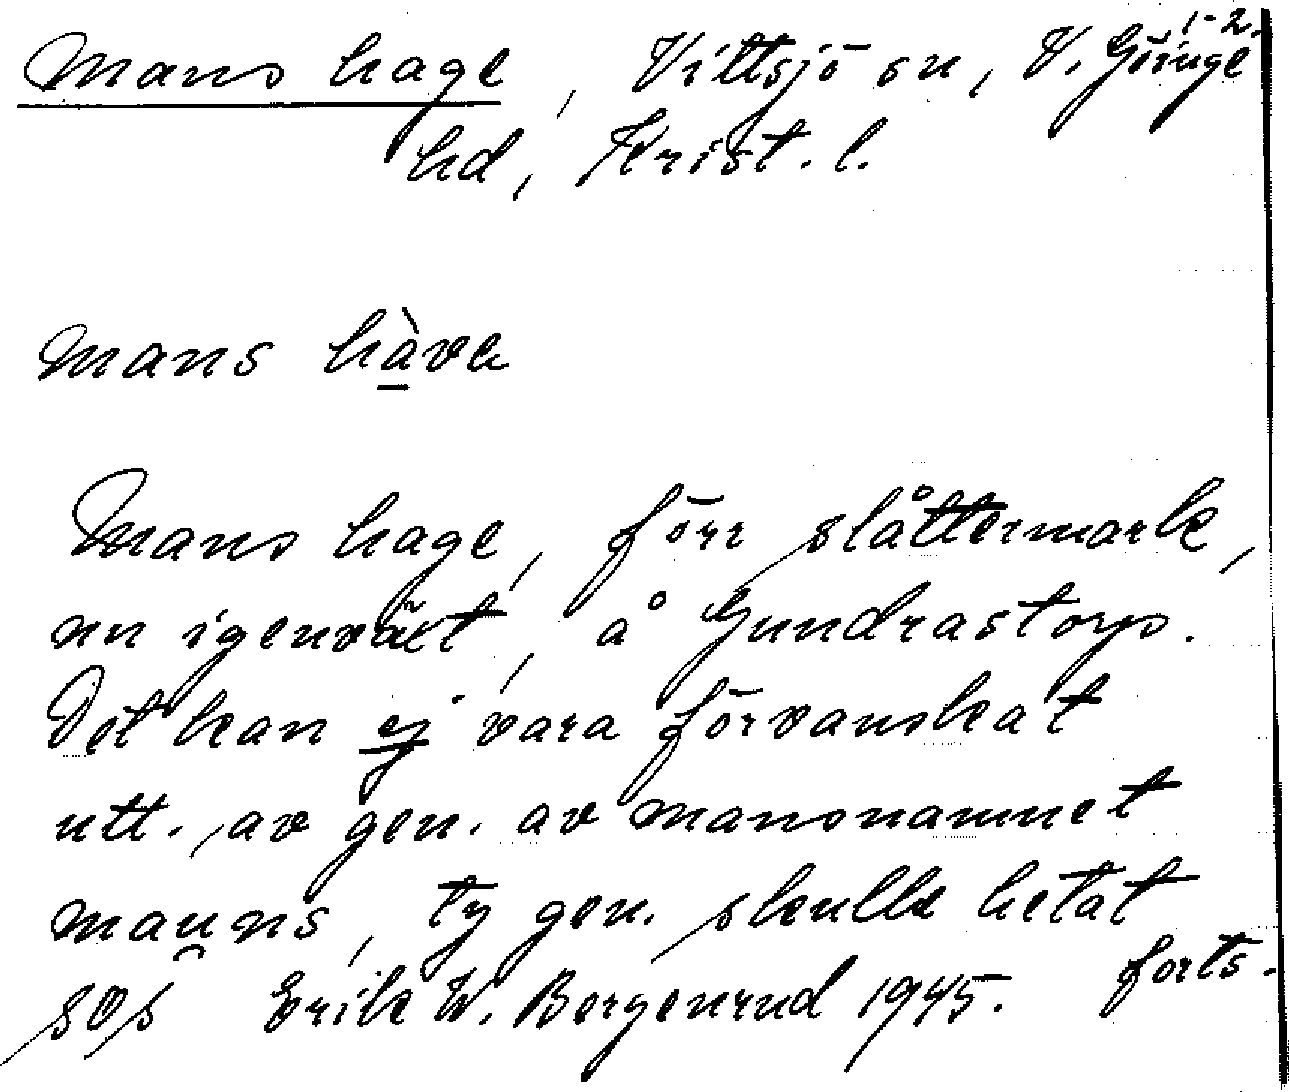 1-2.
Mans hage, Vittsjö sn, V. Göinge
hd, Krist. l.
mans hàva
Mans hage, förr slåttermark,
nu igenväxt, å Gundrastorp.
Det kan ej vara förvanskat
utt. av gen. av mansnamnet
mauns, ty gen. skulle hetat
forts.
SOS Erik W. Borgenrud 1945.